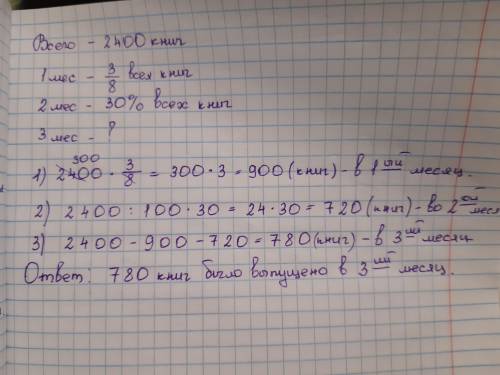 Всего - 2400 книг
1 мес - 3/8 всех книг
2 мес - 30% всех книг
3 мес - ?
300
1) 2400 · 3/8 = 300 · 3 = 900 (книг) - в 1ый месяц.
2) 2400 : 100 · 30 = 24 · 30 = 720 (книг) - во 2ой месяц
3) 2400 - 900 - 720 = 780 (книг) - в 3ий месяц
Ответ: 780 книг было выпущено в 3ий месяц.